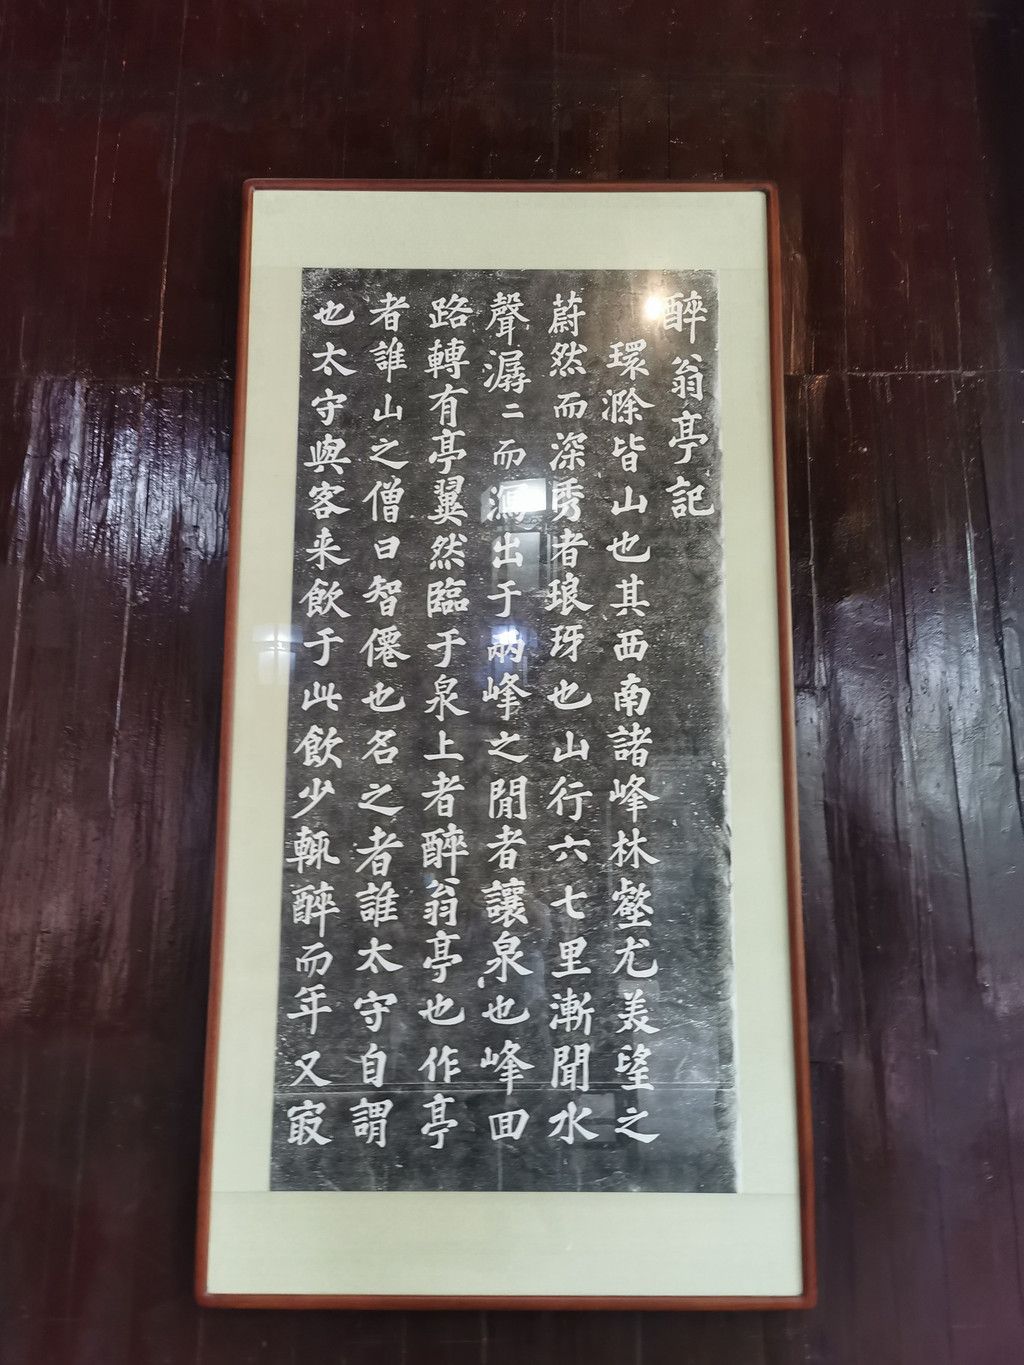 醉翁亭記
環滁皆山也其西南諸峰林壑尤美望之
蔚然而深秀者琅玡也山行六七里漸聞水
聲潺二而瀉出于兩峰之閒者讓泉也峰回
路轉有亭翼然臨于泉上者醉翁亭也作亭
者誰山之僧曰智僊也名之者誰太守自謂
也太守與客来飲于此飲少輒醉而年又㝡